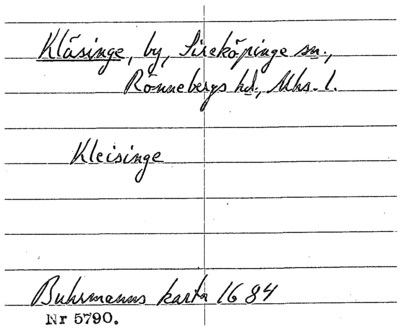 Kläsinge, by, Sireköpinge sn.,
Rönnebergs hd., Mhs. l.
Kleisinge
Buhrmanns karta 1684
Nr 5790.